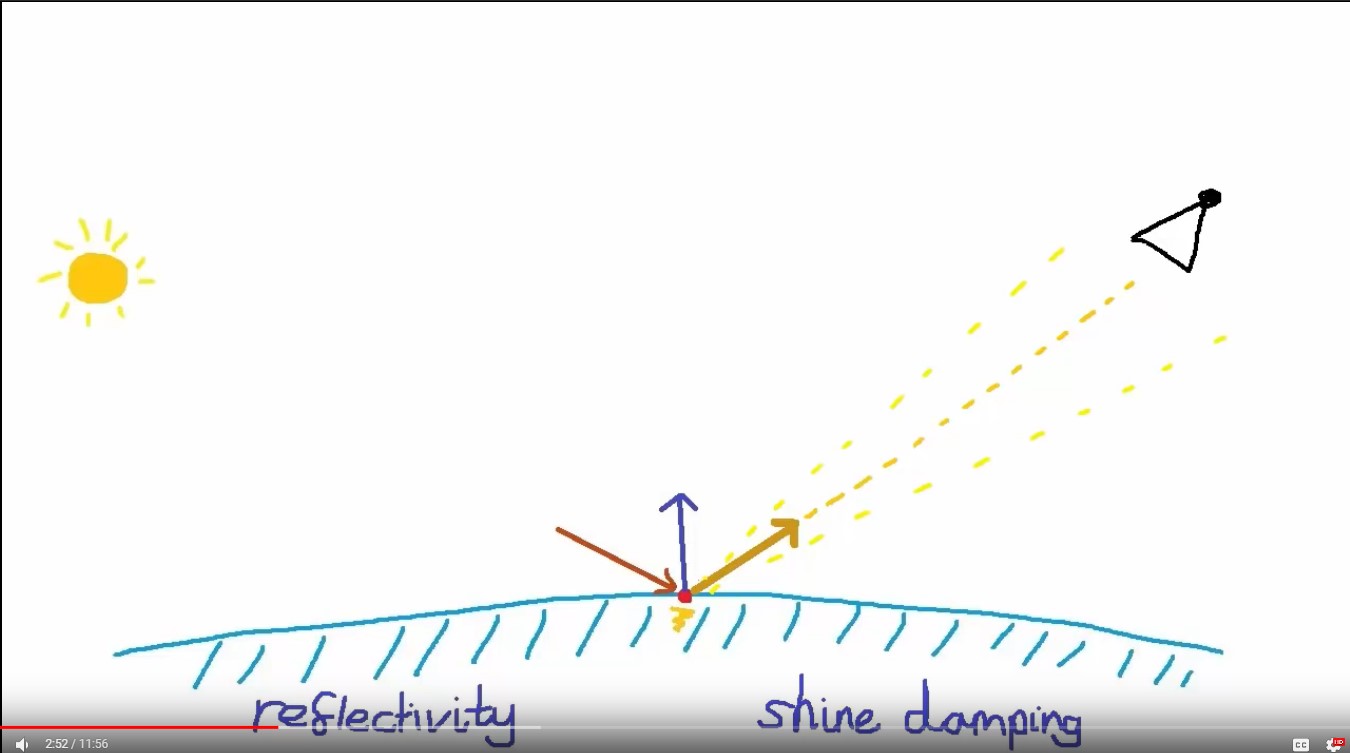 reflectivity shine damping
2:52 / 11:56 CC HD